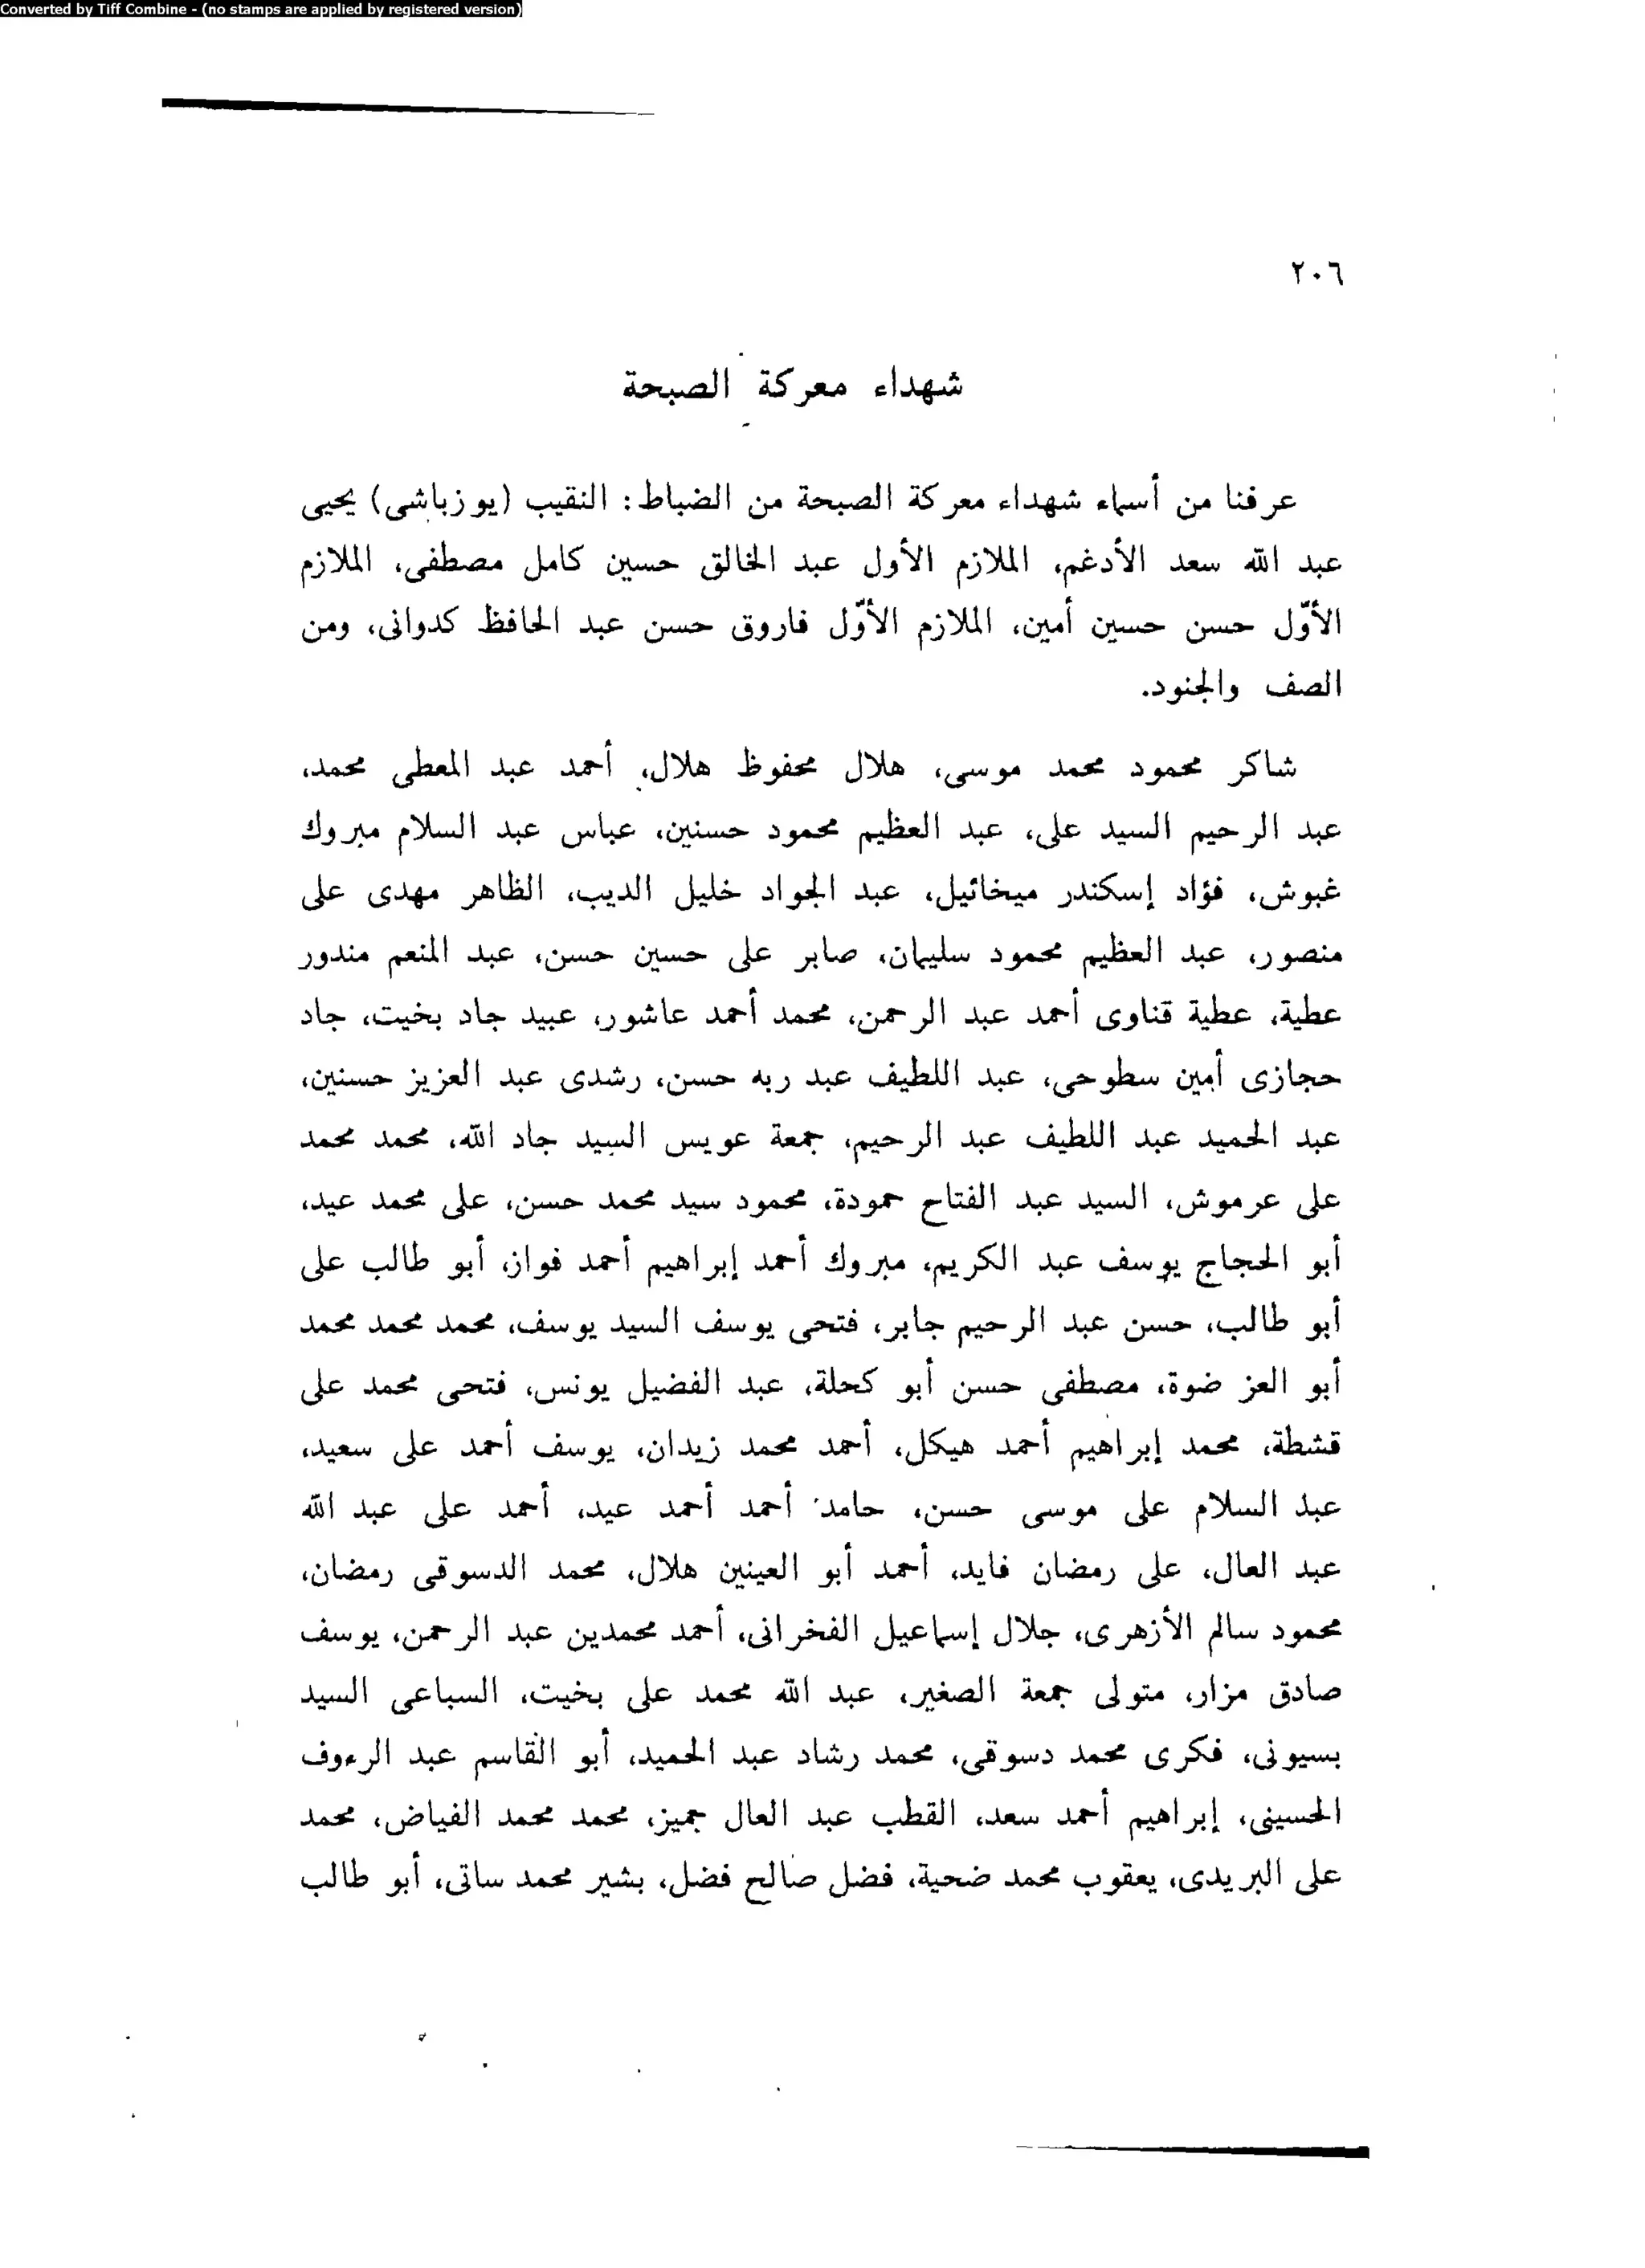 Converted by Tiff Combine - (no stamps are applied by registered version)
٢٠٦
شهداء معركة الصبحة
عرفنا من أسماء شهداء معركة الصبحة من الضباط: النقيب (يوزباشى) يحيى
عبد الله سعد الأدغم، الملازم الأول عبد الخالق حسين كامل مصطفى، الملازم
الأوّل حسن حسين أمين، الملازم الأوّل فاروق حسن عبد الحافظ كدوانى، ومن
الصف والجنود.
شاكر محمود محمد موسى، هلال محفوظ هلال، أحمد عبد المعطى محمد،
عبد الرحيم السيد على، عبد العظيم محمود حسنين، عباس عبد السلام مبروك
غبوش، فؤاد إسكندر ميخائيل، عبد الجواد خليل الديب، الظاهر مهدى على
منصور، عبد العظيم محمود سليمان، صابر على حسين حسن، عبد المنعم مندور
عطية، عطية قناوى أحمد عبد الرحمن، محمد أحمد عاشور، عبيد جاد بخيت، جاد
حجازى أمين سطوحى، عبد اللطيف عبد ربه حسن، رشدى عبد العزيز حسنين،
عبد الحميد عبد اللطيف عبد الرحيم، جمعة عويس السيد جاد الله، محمد محمد
على عرموش، السيد عبد الفتاح حمودة، محمود سيد محمد حسن، على محمد عيد،
أبو الحجاج يوسف عبد الكريم، مبروك أحمد إبراهيم أحمد فواز، أبو طالب على
أبو طالب، حسن عبد الرحيم جابر، فتحى يوسف السيد يوسف، محمد محمد محمد
أبو العز ضوة، مصطفى حسن أبو كحلة، عبد الفضيل يونس، فتحى محمد على
قشطة، محمد إبراهيم أحمد هيكل، أحمد محمد زيدان، يوسف أحمد على سعيد،
عبد السلام على موسى حسن، حامد أحمد أحمد عيد، أحمد على عبد الله
عبد العال، على رمضان فايد، أحمد أبو العينين هلال، محمد الدسوقى رمضان،
محمود سالم الأزهرى، جلال إسماعيل الفخرانى، أحمد محمدين عبد الرحمن، يوسف
صادق مزار، متولى جمعة الصغير، عبد الله محمد على بخيت، السباعى السيد
بسيونى، فكرى محمد دسوقى، محمد رشاد عبد الحميد، أبو القاسم عبد الرءوف
الحسينى، إبراهيم أحمد سعد، القطب عبد العال جميز، محمد محمد الفياض، محمد
على البريدى، يعقوب محمد ضحية، فضل صالح فضل، بشير محمد ساتى، أبو طالب